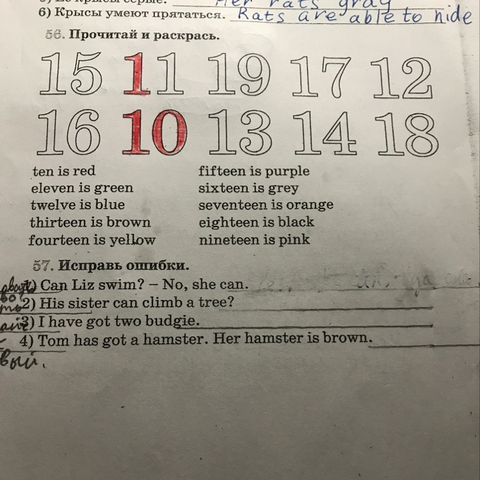 Her rats gray
6) Крысы умеют прятаться. Rats are able to hide
56. Прочитай и раскрась.
15 11 19 17 12
16 10 13 14 18
ten is red
eleven is green
twelve is blue
thirteen is brown
fourteen is yellow
fifteen is purple
sixteen is grey
seventeen is orange
eighteen is black
nineteen is pink
57. Исправь ошибки.
1) Can Liz swim? – No, she can.
2) His sister can climb a tree?
3) I have got two budgie.
4) Tom has got a hamster. Her hamster is brown.